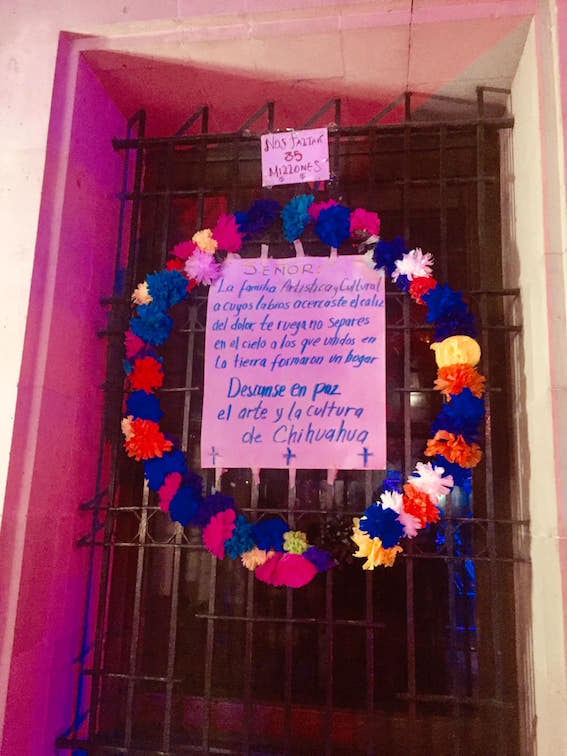 NOS FALTAN
35
MILLONES
$ $
SEÑOR:
La familia Artistica y Cultural
a cuyos labios acercaste el caliz
del dolor, te ruega no separes
en el cielo a los que unidos en
la tierra formaron un hogar
Descanse en paz
el arte y la cultura
de Chihuahua